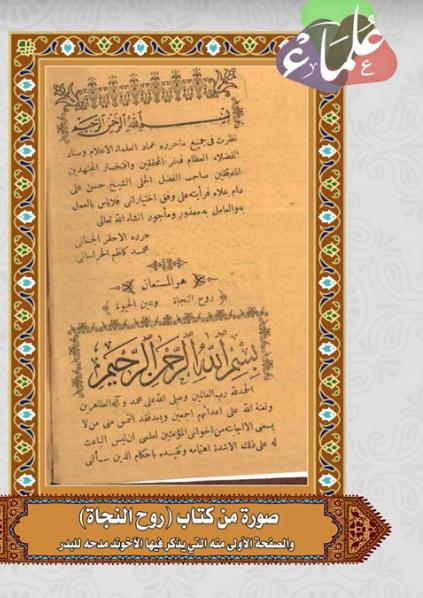 علماء
ع
بسم الله الرحمن الرحيم
نظرت في جميع ماحرره عماد العلماء الاعلام وسناد
الفضلاء العظام فخر المحققين وافتخار المجتهدين
المدققين صاحب الفضل الجلي الشيخ حسن علي
دام علاه فرأيته على وفق اختياراتي فلاباس بالعمل
به والعامل به معذور ومأجور انشاء الله تعالى
حرره الاحقر الجاني
محمد كاظم الخراساني
هو المستعان
روح النجاة وعين الحيوة
بسم الله الرحمن الرحيم
الحمدلله رب العالمين وصلى الله على محمد وآله الطاهرين
ولعنة الله على اعدائهم اجمعين وبعد فقد التمس مني من لا
يسعني الا اجابت من اخواني المؤمنين لعلمي ان ليس الباعث
له على ذلك الا شدة اهتمامه وتقيده باحكام الدين سألني
صورة من كتاب (روح النجاة)
والصفحة الأولى منه التي يذكر فيها الآخوند مدحه للبدر